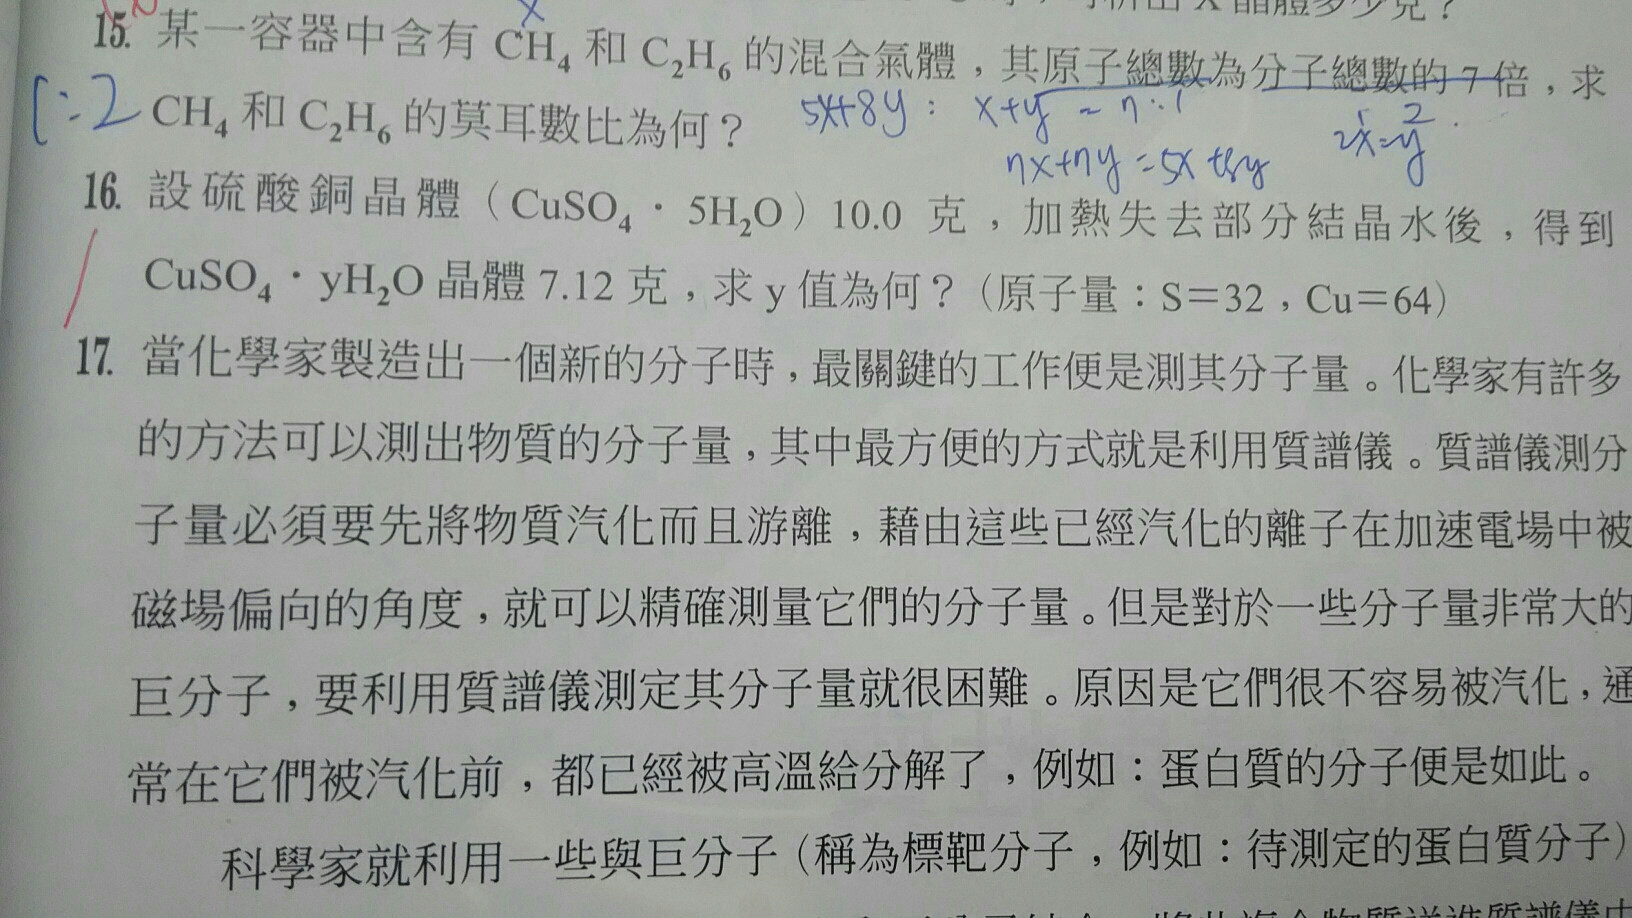 晶體多少克？
15. 某一容器中含有 CH₄ 和 C₂H₆ 的混合氣體，其原子總數為分子總數的 7 倍，求
CH₄ 和 C₂H₆ 的莫耳數比為何？
1:2
x
5x+8y : x+y = 7:1
7x+7y = 5x+8y
2x=y
1 2
16. 設硫酸銅晶體（CuSO₄・5H₂O）10.0 克，加熱失去部分結晶水後，得到
CuSO₄・yH₂O 晶體 7.12 克，求 y 值為何？（原子量：S＝32，Cu＝64）
17. 當化學家製造出一個新的分子時，最關鍵的工作便是測其分子量。化學家有許多
的方法可以測出物質的分子量，其中最方便的方式就是利用質譜儀。質譜儀測分
子量必須要先將物質汽化而且游離，藉由這些已經汽化的離子在加速電場中被
磁場偏向的角度，就可以精確測量它們的分子量。但是對於一些分子量非常大的
巨分子，要利用質譜儀測定其分子量就很困難。原因是它們很不容易被汽化，通
常在它們被汽化前，都已經被高溫給分解了，例如：蛋白質的分子便是如此。
科學家就利用一些與巨分子（稱為標靶分子，例如：待測定的蛋白質分子）